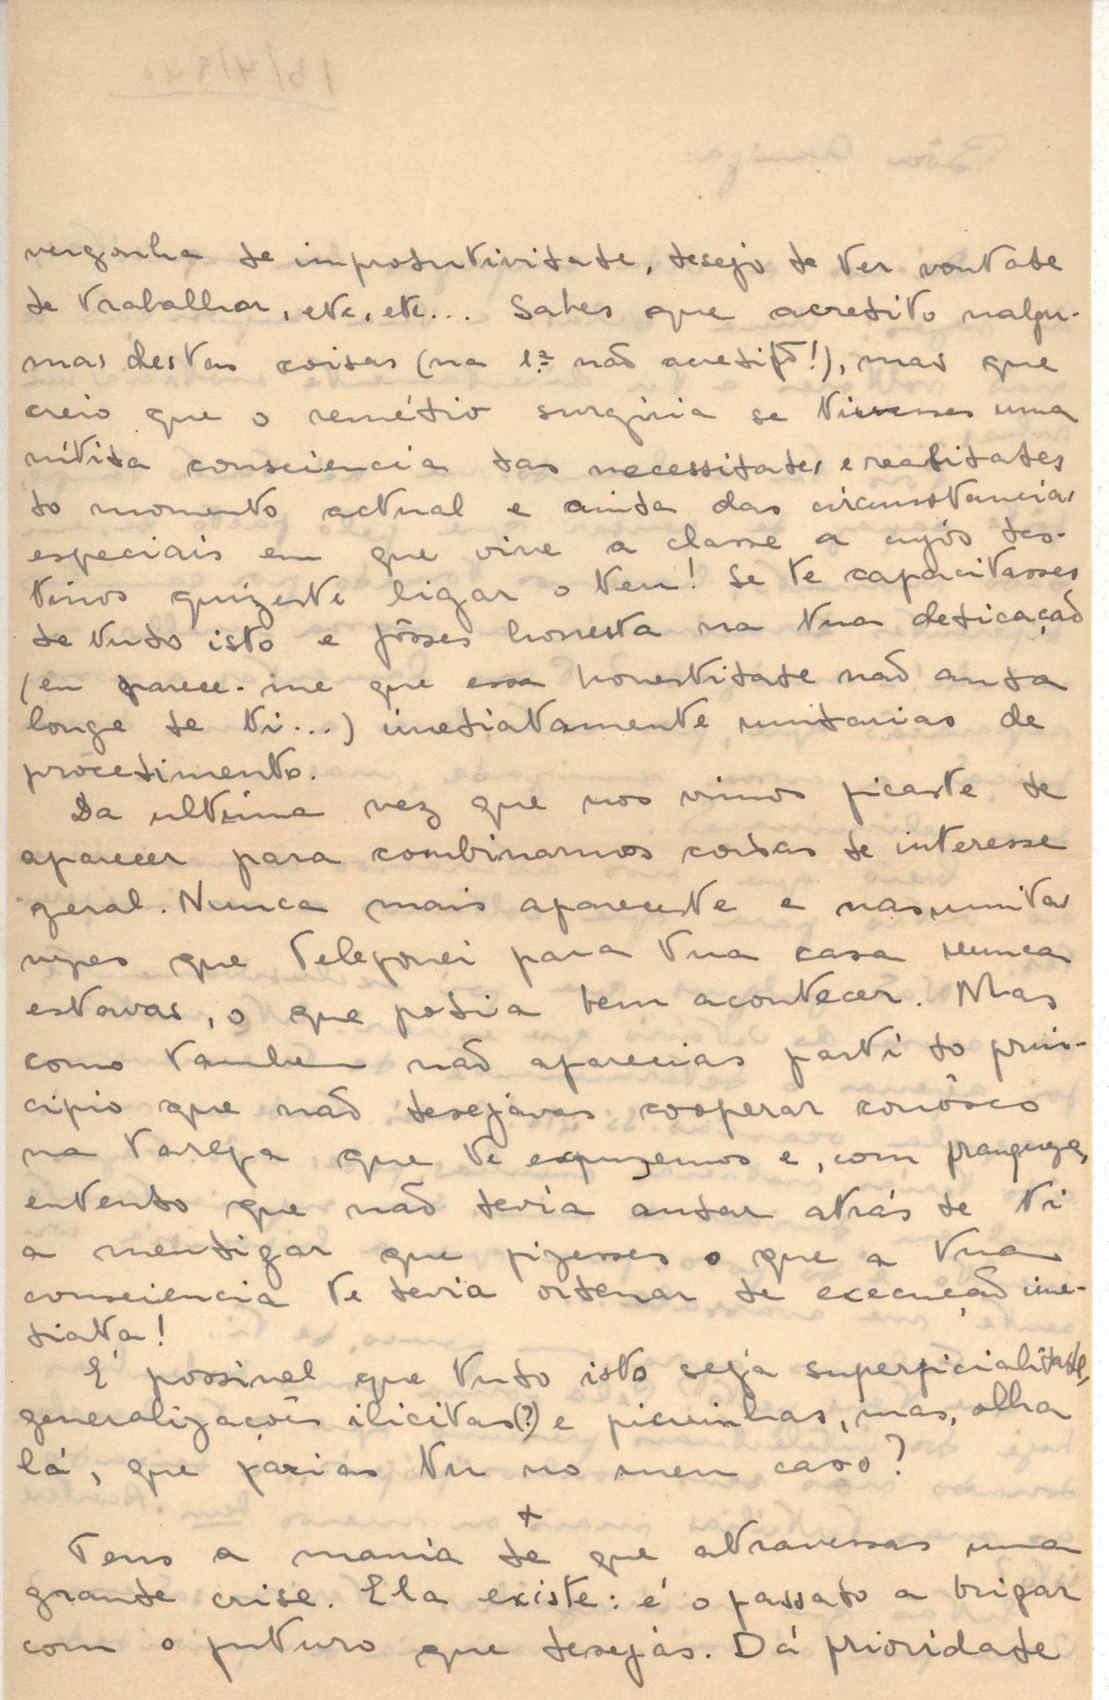 vergonha de improdutividade, desejo de ter vontade
de trabalhar, etc, etc... Sabes que acredito nalgu-
mas destas coisas (na 1ª não acredito!), mas que
creio que o remédio surgiria se tivesses uma
nítida consciencia das necessidades e realidades
do momento actual e ainda das circunstancias
especiais em que vive a classe a cujós des-
tinos quizeste ligar o teu! Se te capacitasses
de tudo isto e fôsses honesta na tua dedicação
(eu parece-me que essa honestidade não anda
longe de ti...) imediatamente mudarias de
procedimento.
Da ultima vez que nos vimos ficaste de
aparecer para combinarmos coisas de interesse
geral. Nunca mais apareceste e nas muitas
vezes que telefonei para tua casa nunca
estavas, o que podia bem acontecer. Mas
como tambem não aparecias parti do prin-
cipio que não desejavas cooperar conôsco
na tarefa que te expuzemos e, com franqueza,
entendo que não devia andar atrás de ti
a mendigar que fizesses o que a tua
consciencia te devia ordenar de execução ime-
diata!
É possivel que tudo isto seja superficialidade,
generalizações ilicitas(?) e picuinhas, mas, olha
lá, que farias tu no meu caso?
+
Tens a mania de que atravessas uma
grande crise. Ela existe: é o passado a brigar
com o futuro que desejas. Dá prioridade